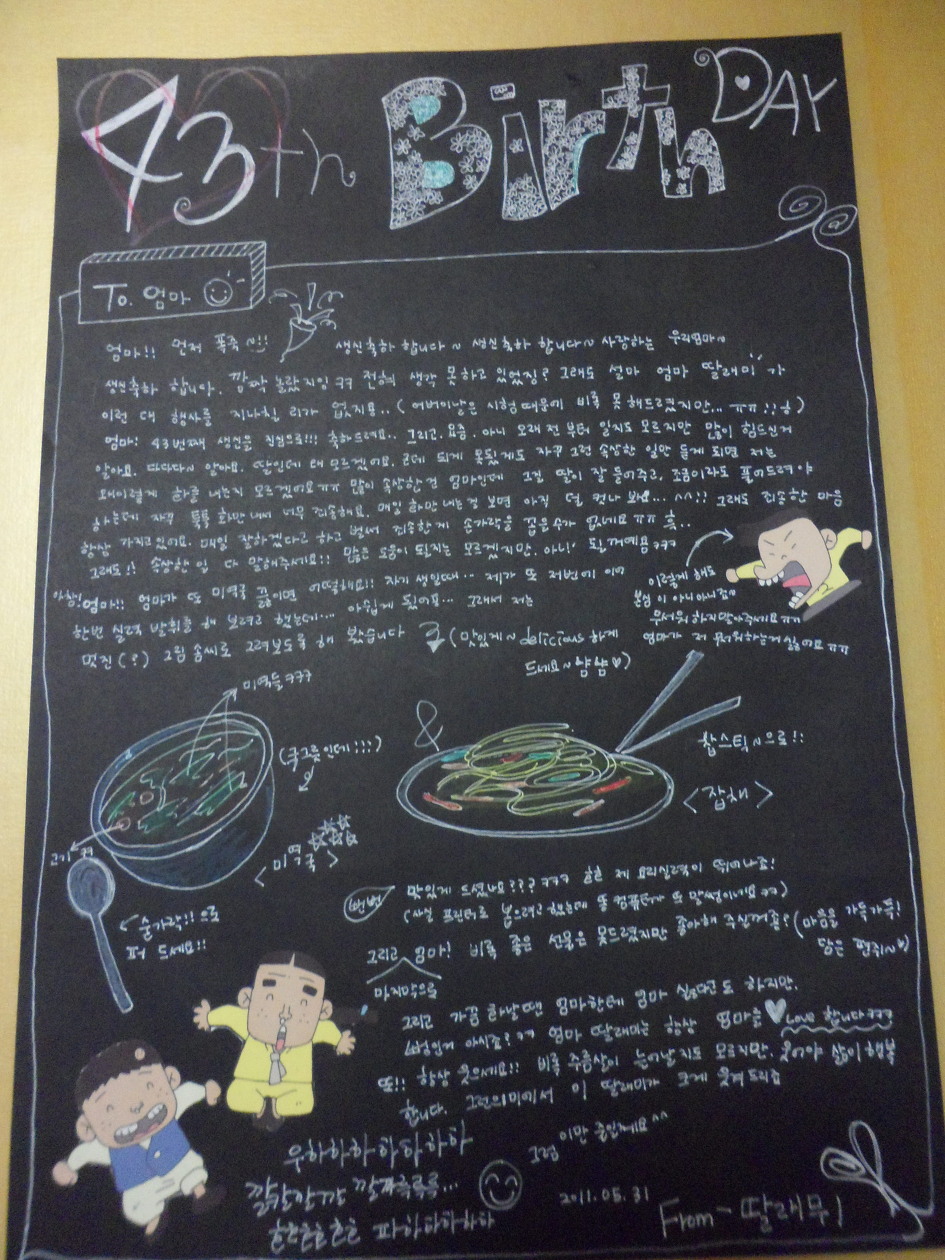 43th Birth DAY
To. 엄마
엄마!! 먼저 폭죽~!!
생신축하 합니다~ 생신축하 합니다~ 사랑하는 우리엄마~
생신축하 합니다. 깜짝 놀랐지잉 ㅋㅋ 전혀 생각 못하고 있었징? 그래도 설마 엄마 딸래미가
이런 대 행사를 지나칠 리가 없지용..( 어버이날은 시험때문에 비록 못해드렸지만... ㅠㅠ;;;)
엄마! 43번째 생신을 진심으로!!! 축하드려요.. 그리고, 요즘. 아니 오래 전부터 일지도 모르지만 많이 힘드신거
알아요. 다다다~ 알아요. 딸인데 왜 모르겠어요. 근데 되게 못됬게도 자꾸 그런 속상한 일만 듣게 되면 저는
왜이렇게 화를 내는지 모르겠어요ㅠㅠ 많이 속상한건 엄마인데 그걸 딸이 잘 들어주고, 조금이라도 풀어드려야
하는데 자꾸 툭툭 화만내서 너무 죄송해요. 매일 화만 내는걸 보면 아직 덜 컸나 봐요... ^^;; 그래도 죄송한 마음
항상 가지고있어요. 매일 잘하겠다고 하고 벌써 죄송한게 손가락을 꼽을수가 없네요 ㅠㅠ 흑..
그래도!! 속상한 일 다 말해주세요!! 많은 도움이 될지는 모르겠지만. 아니! 될꺼예욤 ㅋㅋㅋ
이렇게 해도
본심이 아니아니죠~
무서워 하지말아주세요ㅠㅠ
엄마가 저 무서워하는거싫어요ㅠㅠ
아참! 엄마!! 엄마가 또 미역국 끓이면 어떡해요!! 자기 생일때... 제가 또 저번에 이어
한번 실력 발휘를 해 보려고 했는데.... 아쉽게 됬어요... 그래서 저는
멋진(?) 그림 솜씨로 그려보도록 해 봤습니다 (맛있게~ delicious 하게
드세요~ 냠냠♡)
미역들ㅋㅋㅋ
(국그릇인데!!!)
고기
<미역국>
숟가락!! 으로
퍼 드세요!!
&
찹스틱~으로!!
<잡채>
맛있게 드셨나요??? ㅋㅋㅋ 흠흠 제 요리실력이 뛰어나죠!
뻔뻔
(사실 프린터로 뽑으려고 했는데 똥컴퓨터가 또 말썽이네요ㅋㅋ)
그리고 엄마! 비록 좋은 선물은 못드렸지만 좋아해 주실꺼죵? (마음을 가득가득!
담은 편쥐~♡)
마지막으로
그리고 가끔 화날땐 엄마한테 엄마 싫다고도 하지만.
뻥인거 아시죠?ㅋㅋ 엄마 딸래미는 항상 엄마를 ♥ Love 합니다ㅋㅋㅋ
또!! 항상 웃으세요!! 비록 주름살이 늘어날지도 모르지만, 웃어야 삶이 행복
합니다. 그런의미에서 이 딸래미가 크게 웃겨드리죵
그럼 이만 줄일게요^^
우하하하하하하하
2011.05.31
From - 딸래무ㅣ